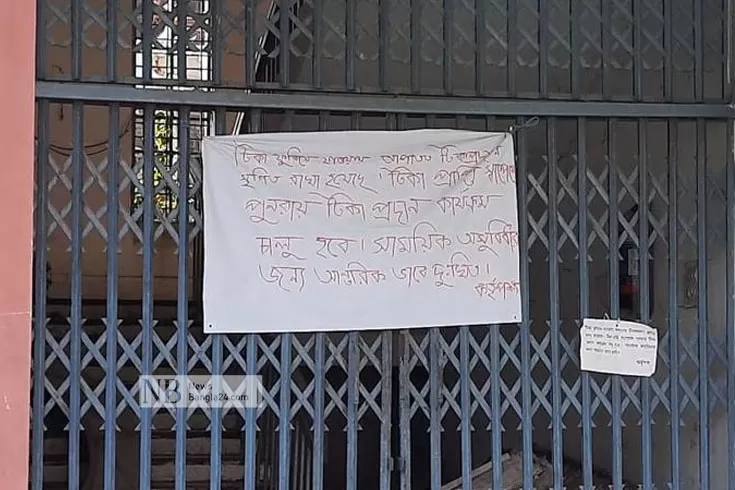 টিকা ফুরিয়ে যাওয়ায় আপাতত টিকাদান
স্থগিত রাখা হয়েছে টিকা প্রাপ্তি সাপেক্ষে
পুনরায় টিকা প্রদান কার্যক্রম
চালু হবে। সাময়িক অসুবিধার
জন্য আন্তরিক ভাবে দুঃখিত।
কর্তৃপক্ষ
NB News
Bangla24.com